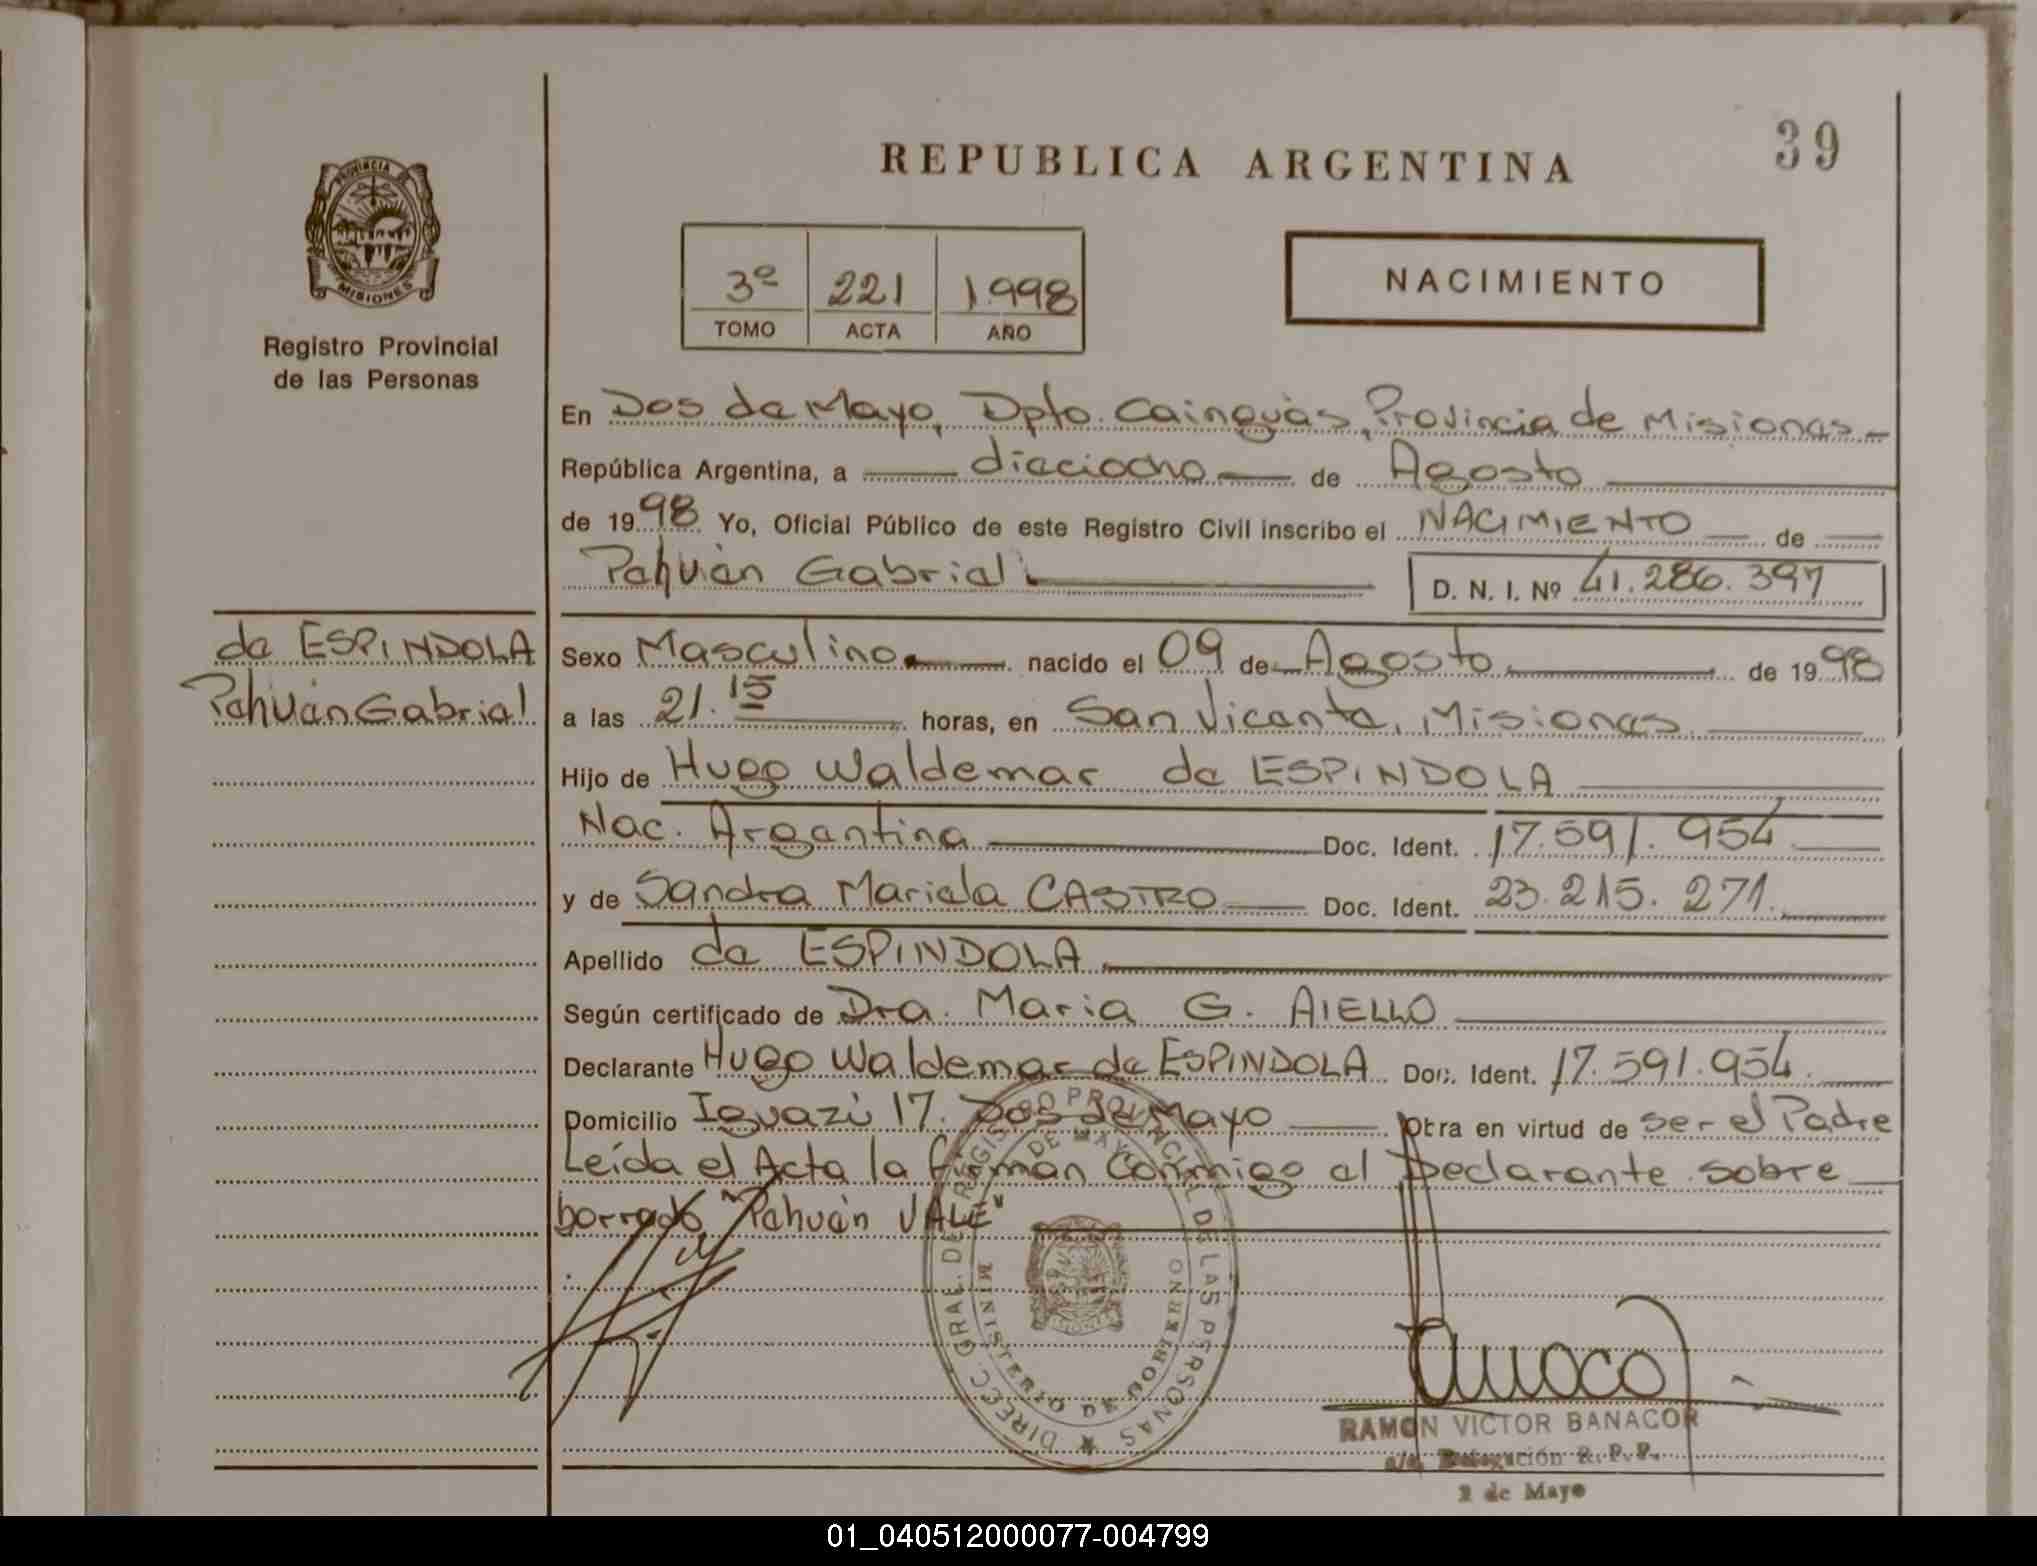 39
REPUBLICA ARGENTINA
PROVINCIA
MISIONES
Registro Provincial
de las Personas
3º 221 1.998
TOMO ACTA AÑO
NACIMIENTO
En Dos de Mayo, Dpto. Cainguàs, Provincia de Misiones
República Argentina, a dieciocho de Agosto
de 1998 Yo, Oficial Público de este Registro Civil inscribo el NACIMIENTO de
Pahuàn Gabriel
D. N. I. Nº 41.286.397
de ESPINDOLA
Pahuán Gabriel
Sexo Masculino nacido el 09 de Agosto de 1998
a las 21.15 horas, en San Vicente, Misiones
Hijo de Hugo Waldemar de ESPINDOLA
Nac. Argentina Doc. Ident. 17.591.954
y de Sandra Mariela CASTRO Doc. Ident. 23.215.271.
Apellido de ESPINDOLA
Según certificado de Dra. Maria G. AIELLO
Declarante Hugo Waldemar de ESPINDOLA Doc. Ident. 17.591.954.
Domicilio Iguazù 17. Dos de Mayo Obra en virtud de ser el Padre
Leída el Acta la firman Conmigo el Declarante sobre
borrado "Pahuán VALE"
DIRECC. GRAL. DE REGISTRO PROVINCIAL DE LAS PERSONAS
DE MAYO
MINISTERIO DE GOBIERNO
RAMON VICTOR BANACOR
a/c Delegación R. P. P.
2 de Mayo
01_040512000077-004799